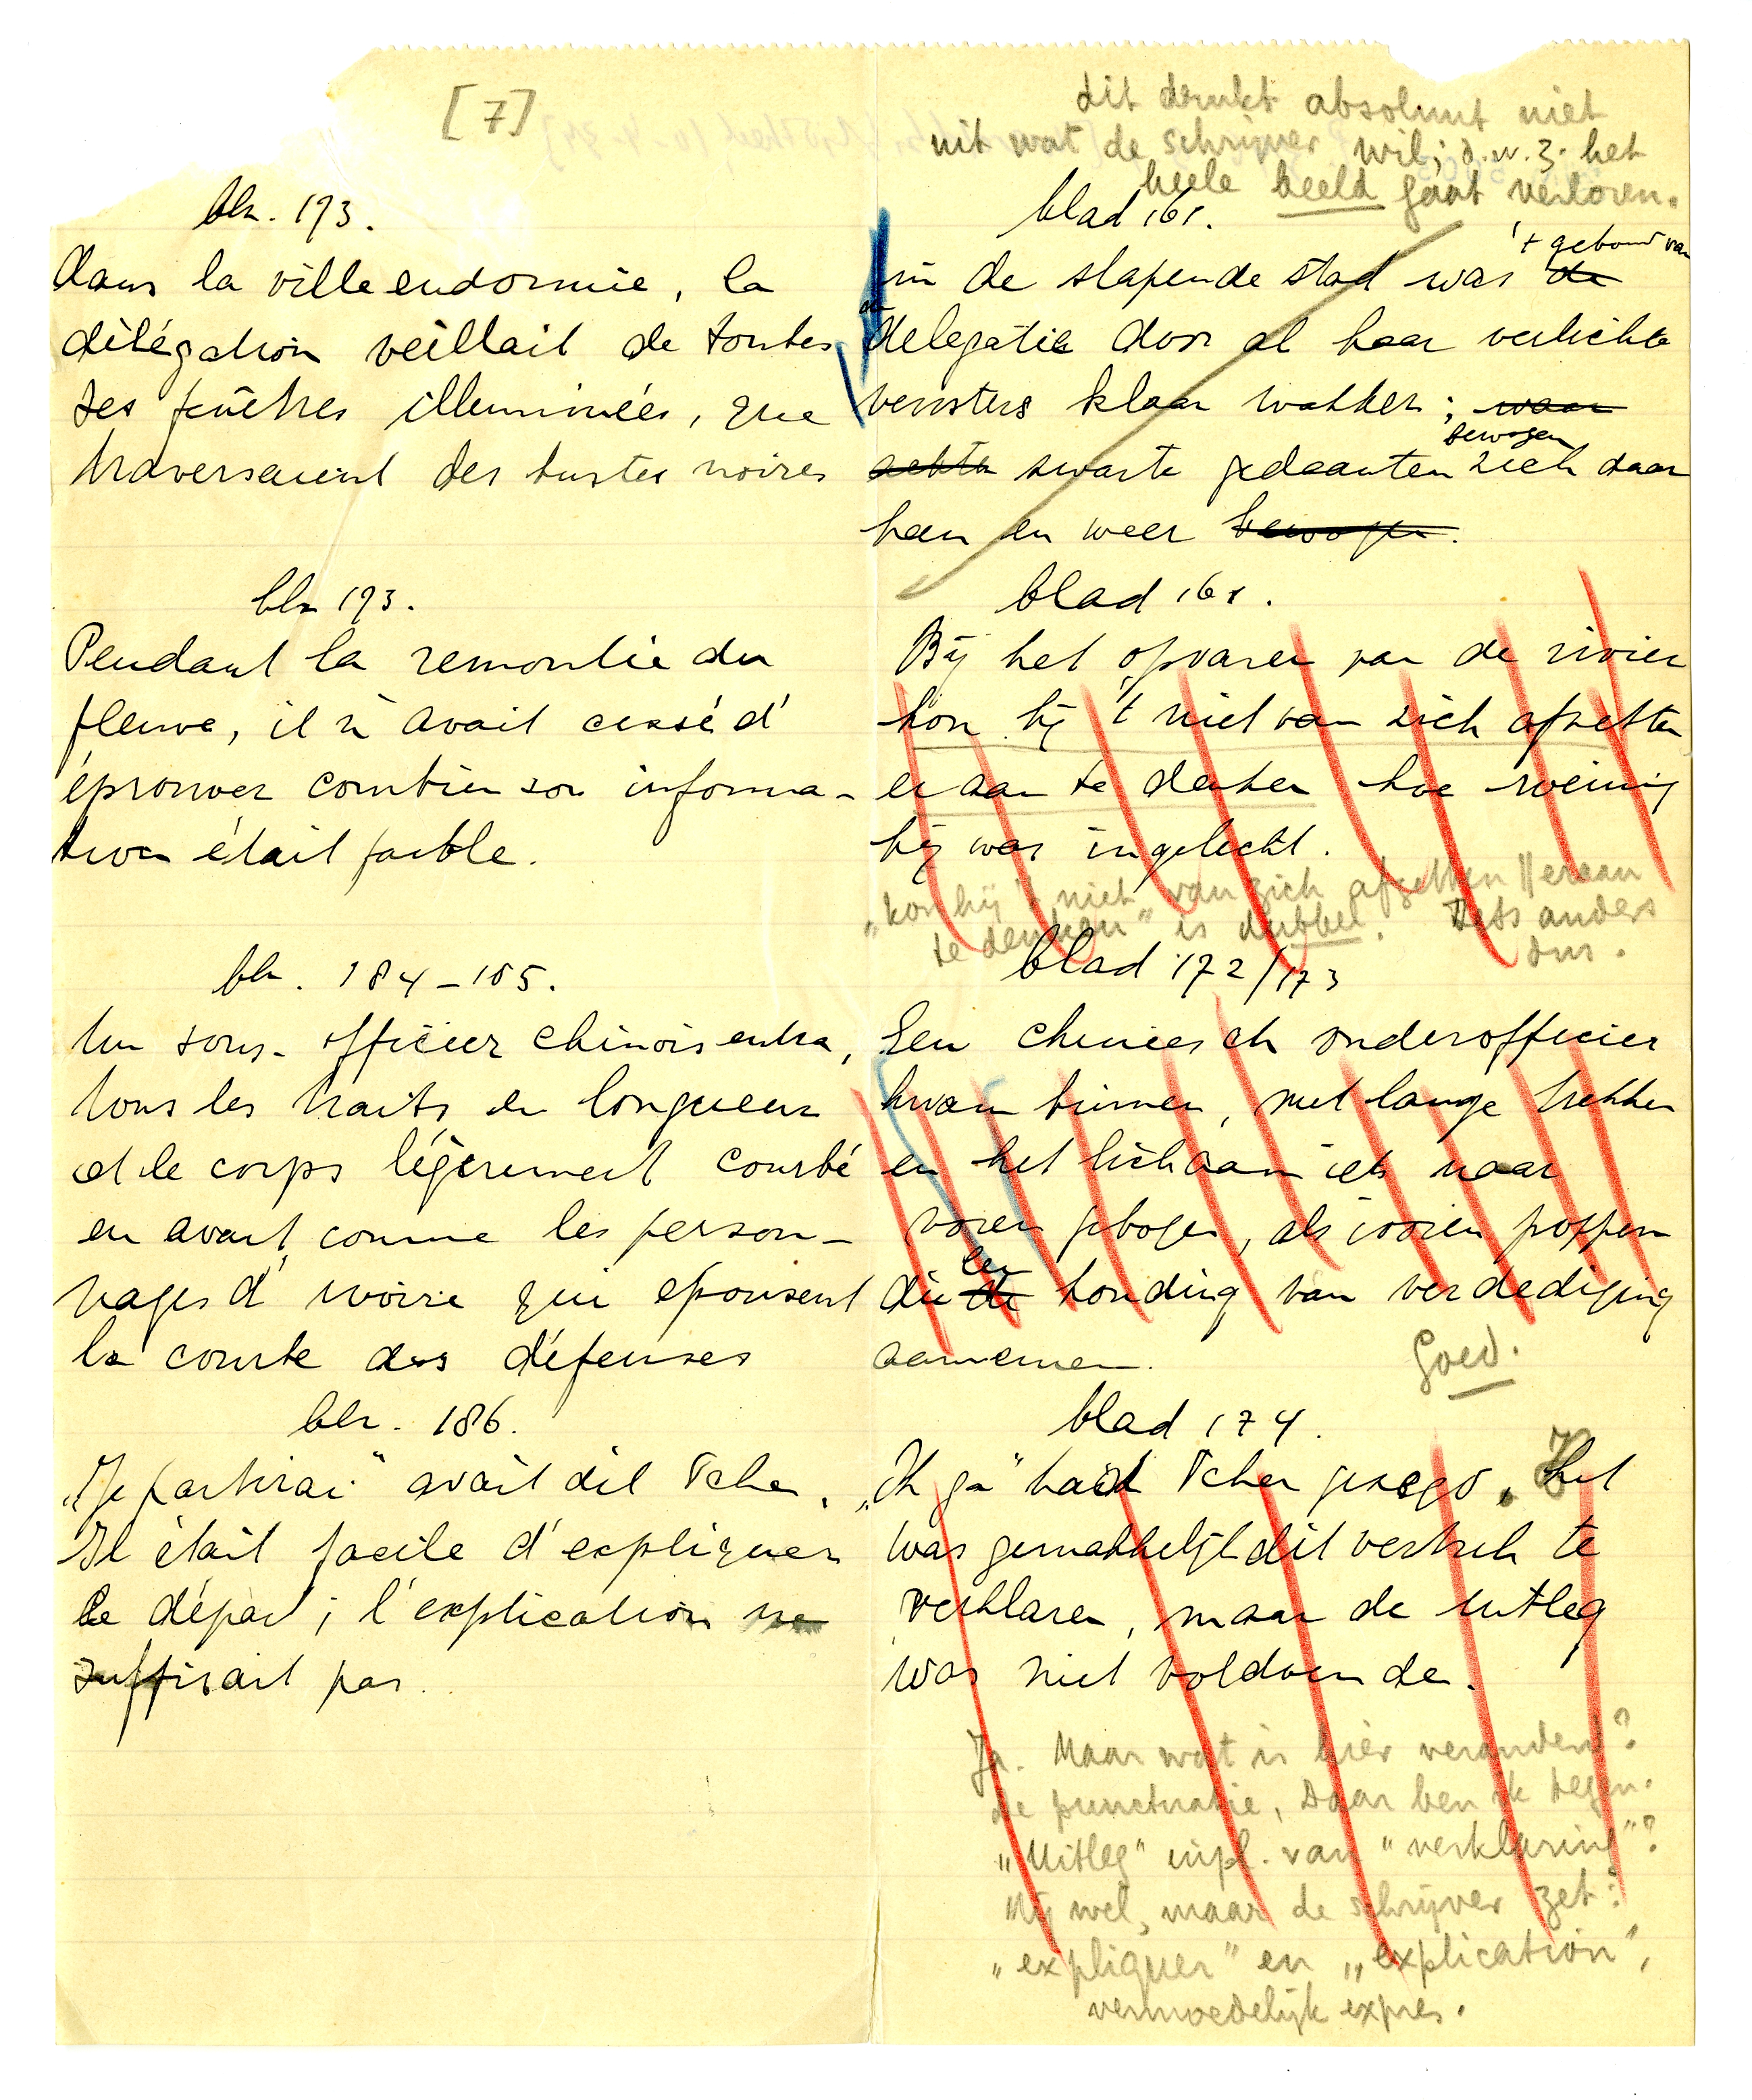 [7]
dit drukt absoluut niet
uit wat de schrijver wil; d.w.z. het
heele beeld gaat verloren.
blz. 173.
Dans la ville endormie, la
délégation veillait de toutes
ses fenêtres illuminées, que
traversaient des bustes noires
blz 173.
Pendant la remontée du
fleuve, il n'avait cessé d'
éprouver combien son informa-
tion était faible.
blz. 184-185.
Un sous-officier chinois entra,
tous les traits en longueur
et le corps légèrement courbé
en avant, comme les person-
nages d'ivoire qui épousent
la courbe des défenses
blz. 186.
"Je partirai" avait dit Tchen.
Il était facile d'expliquer
le départ; l'explication ne
suffisait pas.
blad 161.
In de slapende stad was de
't gebouw van
delegatie door al haar verlichte
vensters klaar wakker; waar
achter zwarte gedaanten zich daar
bewogen
heen en weer bewogen.
blad 161.
Bij het opvaren van de rivier
kon hij 't niet van zich afzetten
eraan te denken hoe weinig
hij was ingelicht.
"kon hij 't niet van zich afzetten || eraan
te denken" is dubbel. Iets anders
dus.
blad 172/173
Een chineesch onderofficier
kwam binnen, met lange trekken
en het lichaam iets naar
voren gebogen, als ivoren poppen
die de houding van verdediging
een
aannemen.
Goed.
blad 174.
"Ik ga" had Tchen gezegd. Het
was gemakkelijk dit vertrek te
verklaren, maar de uitleg
was niet voldoende.
Ja. Maar wat is hier veranderd?
de punctuatie, Daar ben ik tegen.
"Uitleg" inpl. van "verklaring"?
Mij wel, maar de schrijver zet:
"expliquer" en "explication",
vermoedelijk expres.